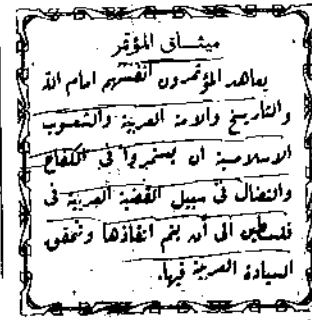 ميثاق المؤتمر
يعاهد المؤتمرون أنفسهم امام الله
والتاريخ والامة العربية والشعوب
الاسلامية ان يستمروا في الكفاح
والنضال في سبيل القضية العربية في
فلسطين الى أن يتم انقاذها وتتحقق
السيادة العربية فيها.